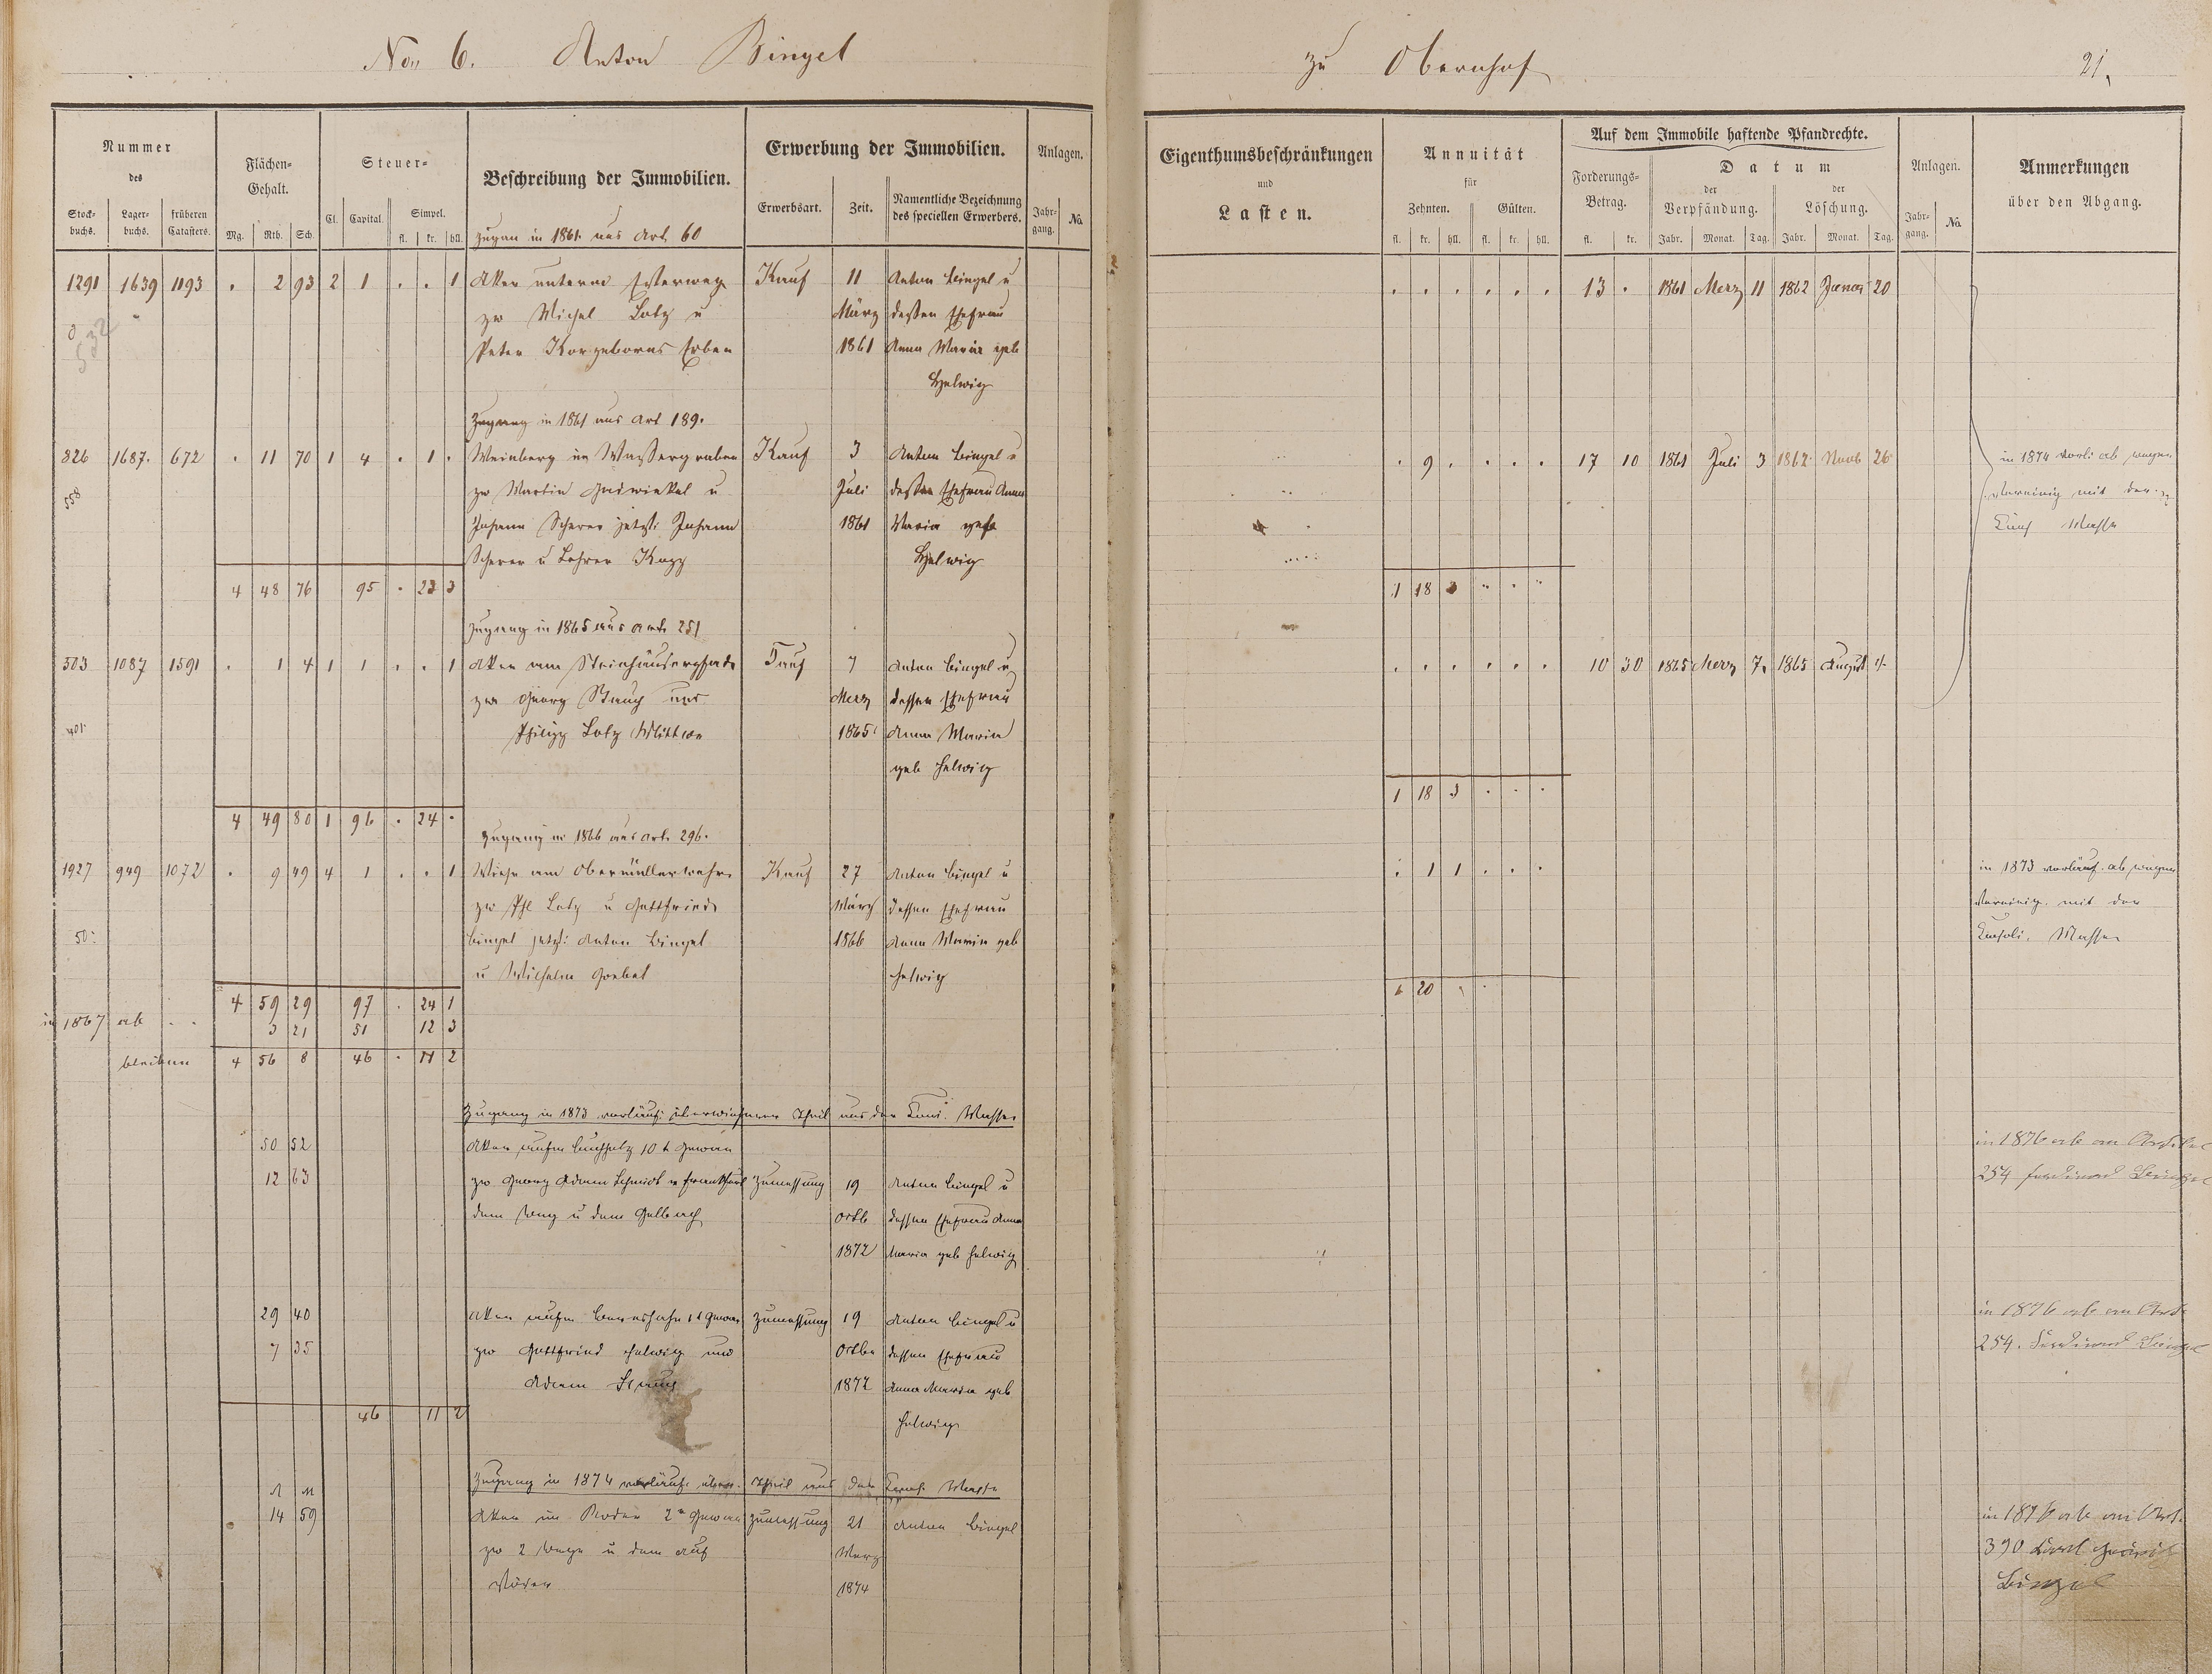 No. 6. Anton Bingel
zu Obernhof
21.
Nummer des
Stock-buchs. Lager-buchs. früheren Catasters.
Flächen-Gehalt.
Mg. Rth. Sch.
Steuer-
Cl. Capital. Simpel.
fl. kr. hll.
Beschreibung der Immobilien.
Erwerbung der Immobilien.
Erwerbsart. Zeit. Namentliche Bezeichnung des speciellen Erwerbers.
Anlagen.
Jahr-gang. No.
Eigenthumsbeschränkungen und Lasten.
Annuität für
Zehnten. Gülten.
fl. kr. hll. fl. kr. hll.
Auf dem Immobile haftende Pfandrechte.
Forderungs-Betrag.
fl. kr.
Datum
der Verpfändung. der Löschung.
Jahr. Monat. Tag. Jahr. Monat. Tag.
Anlagen.
Jahr-gang. No.
Anmerkungen über den Abgang.
Zugan in 1861 aus Art 60
1291 1639 1193 . 2 93 2 1 . . 1 Acker unterm Esterweg Kauf 11 Anton Bingel u . . . . . . 13 . 1861 Merz 11 1862 Januar 20
zw Michel Lotz u März dessen Ehefrau
532
Peter Erben 1861 Anna Maria geb
Helwig
Zugang in 1861 aus Art 189.
326 1687. 672 . 11 70 1 4 . 1 . Weinberg im Wassergraben Kauf 3 Anton Bingel u . 9 . . . . 17 10 1861 Juli 3 1862 Novb 26 in 1874 vorl. ab wegen
558 zw Martin u Juli dessen Ehefrau Anna Vereinig mit der
Johann Scherer jetzt: Johann 1861 Maria geb Cons Masse
Scherer u Lehrer Helwig
4 48 76 95 . 23 3 1 18 3 " " "
Zugang in 1865 aus Art. 251
503 1087 1591 . 1 4 1 1 . . 1 Acker am Steinhäuserpfade Kauf 7 Anton Bingel u . . . . . . 10 30 1865 Merz 7. 1865 August 4.
zw Georg Stauch und Merz dessen Ehefrau
401 Philipp Lotz Wittwe 1865 Anna Maria
geb Helwig
1 18 3 . . .
4 49 80 1 96 . 24 .
Zugang in 1866 aus Art. 296.
1927 949 1072 . 9 49 4 1 . . 1 Wiese am Obermüllerwehr Kauf 27 Anton Bingel u . 1 1 . . . in 1873 vorläuf. ab wegen
zw Phl Lotz u Gottfried März dessen Ehefrau Vereinig. mit der
50 Bingel jetzt: Anton Bingel 1866 Anna Maria geb Consoli. Masse
u Wilhelm Goebel Helwig
4 59 29 97 . 24 1 1 20
in 1867 ab . . 3 21 51 12 3
bleiben 4 56 8 46 . 11 2
Zugang in 1873 vorläuf: überwiesener Theil aus der Cons. Masse
50 52 Acker aufm Buchholz 10 t Gewan in 1876 ab an Artikel
12 63 zw Georg Adam Schmidt Zumessung 19 Anton Bingel u 254 Ferdinand Bingel
dem Weg u dem Gelbach Octb dessen Ehefrau Anna
1872 Maria geb Helwig
29 40 Acker aufm 1 t Gewan Zumessung 19 Anton Bingel u in 1876 ab an Art.
7 35 zw Gottfried Helwig und Octbr dessen Ehefrau 254. Ferdinand Bingel
Adam Stauch 1872 Anna Maria geb
46 11 2 Helwig
Zugang in 1874 vorläuf. überw. Theil aus der Cons. Masse
14 59 Acker im Roder 2 n Gewan Zumessung 21 Anton Bingel in 1876 ab an Art.
zw 2 Wege u dem auf März 390 Karl
1874 Bingel